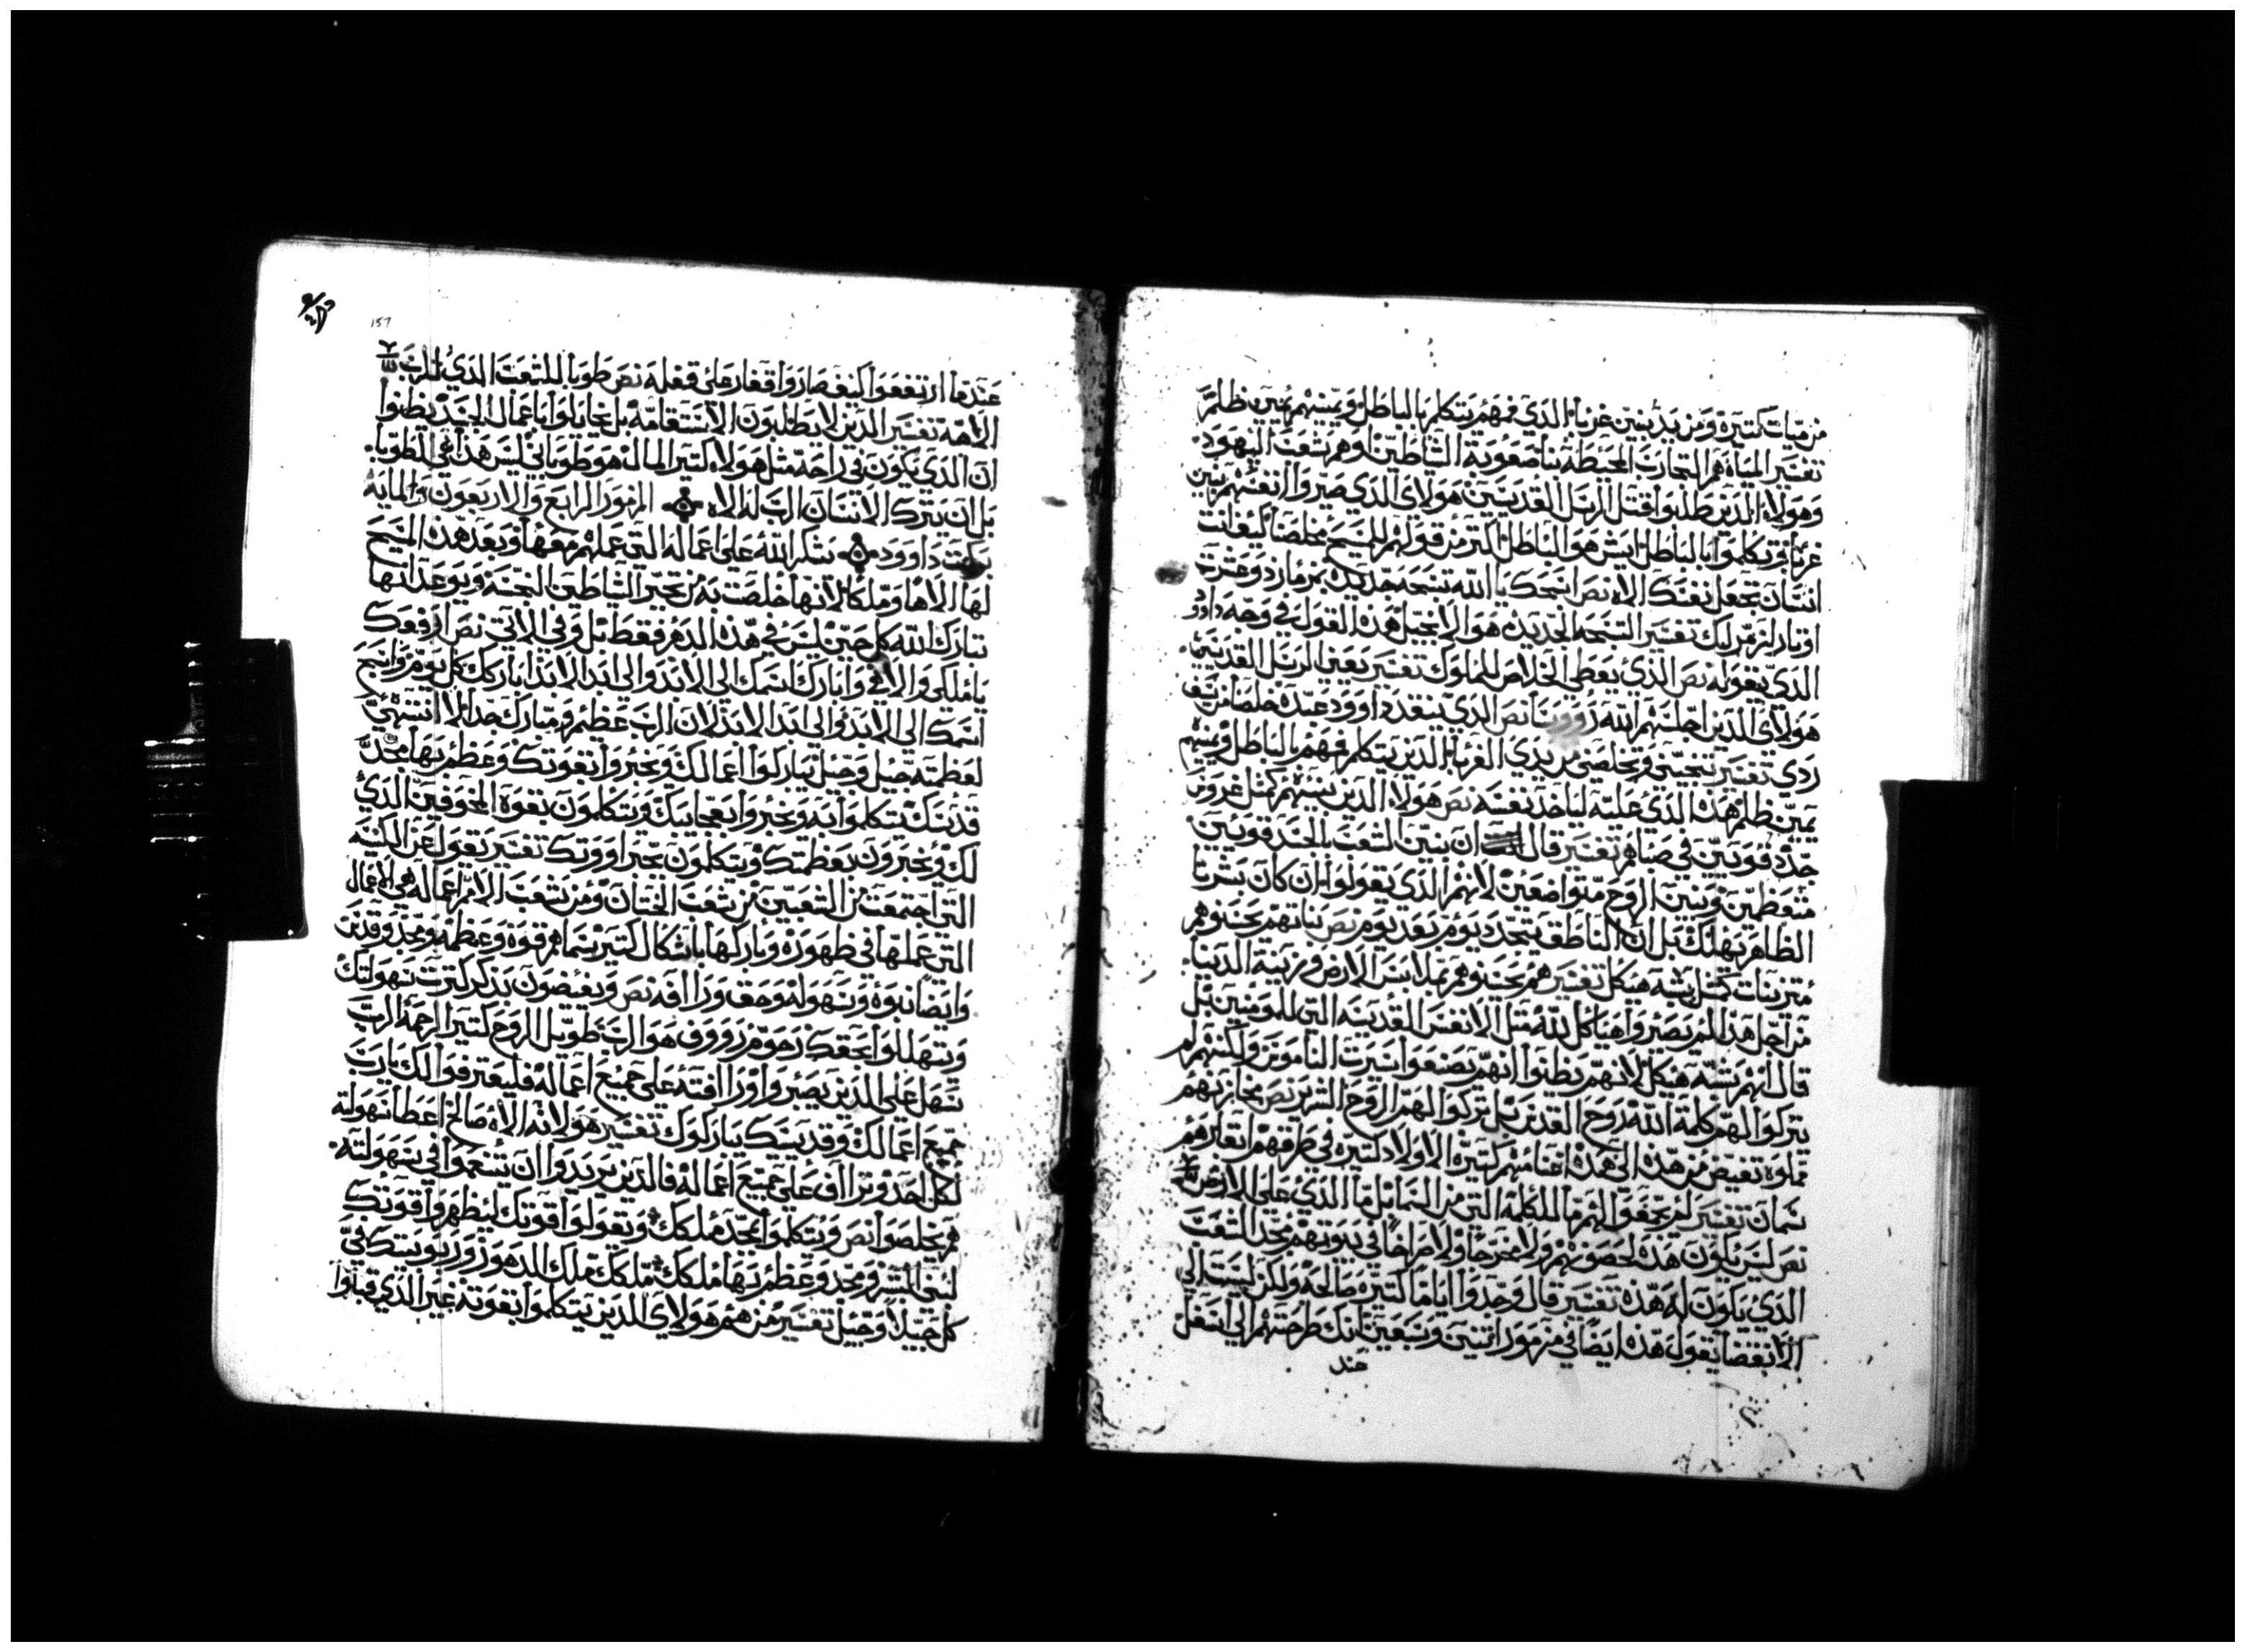 من مياة كتيرة ومن يد بنين غربا الذي فمهم يتكلم بالباطل ويمينهم يمين ظلم
تفسير المياة هم التجارب المحيطة بنا صعوبة الشاطين وهم شعب اليهود
وهولاء الذين طلبوا قتل الرسل القديسين هولاى الذي صيروا انفسهم بنين
غربا وتكلموا بالباطل ايش هو الباطل اكتر من قولهم للمسيح مخلصنا كيف انت
انسان تجعل نفسك الاه نص اسبحك يا الله تسبحه جديده بمزمار دو عشرة
اوتار ازمر لك تفسير التسبحه الجديده هو الانجيل هذه القول في وجه داوود
الذي يقوله نص الذي يعطي الخلاص للملوك تفسير يعني الرسل القديسين
هولاى الذين اجلسهم الله نص الذي ينقد داوود عبده خلصنا من سيف
ردي تفسير تنجيني وتخلصني من يدي الغربا الذين يتكلم فمهم بالباطل ويمينهم
يمين ظلم هذه الذي عليته لياخد نفسه نص هولاء الذين بنيهم كمتل غروس
جدد قويين في صباهم تفسير قال ان بنين الشعب بالجسد قويين
متعظمين وبنين الروح متواضعين لانهم الذي يقولوا ان كان بشرنا
الظاهر يهلك بل ان الناطق يتجدد يوم بعد يوم نص بناتهم محسنو هم
متزينات كمتل شبه هيكل تفسير هم محسنو هم بملابس الارض وزينة الدنيا
من اجل هذا لم يصيروا هياكل لله متل الانفس القديسه التي للمومنين بل
قال انهم شبه هيكل لانهم يظنوا انهم يصنعوا سيرت الناموس ولكنهم لم
يتركوا لهم كلمة الله روح القدس بل تركوا لهم الروح الشرير نص مخازنهم
مملوه تفيض من هذه الى هذه اغنامهم كتيرة الاولاد كتيره في طرقهم ابقارهم
سمان تفسير لم يتحفق لهم ما للكلمة التي من السمائل ما الذي على الارض
نص ليس يكون هذه لحصورهم ولا مخرجا ولا صراخا في بيوتهم مجد الشعب
الذي يكون له هذه تفسير قال وجدوا اياما كتيره صالحه ولكن ليست الي
الانقضا يقول هذه ايضا في مزمور اتنين وسبعين انك طرحتهم الي اسفل
عند
157
عندما ارتفعوا كيف صاروا قفار على قفله نص طوبا للشعب الذي الرب
الاهه تفسير الذين لا يطلبون الاستقامة بل يحايلوا باعمال الجسد يظنوا
ان الذي يكون في راحة متل هولاء كتير المال هو طوباني ليس هذا هي الطوبا
بل ان يترك الانسان الرب له الاه المزمور الرابع والاربعون والمايه
بركت داوود يشكر الله على اعماله التي عملهم معها وبعد هذه المسيح
لها الاها وملكا لانها خلصت به من تحير الشاطين النجسه ويوعد انها
تبارك الله كل حين ليس في هذه الدهر فقط بل وفي الاتي نص ارفعك
يا ملكي والاهي وابارك اسمك الى الابد والى ابد الابد ابارك كل يوم واسبح
اسمك الى الابد والى ابد الابد لان الرب عظيم ومبارك جدا لا انتهى
لعظمته جيل وجيل يباركوا اعمالك ويخبروا بقوتك وعظم بها مجد
قدسك يتكلموا به ويخبروا بعجايبك ويتكلمون بقوة المخوفين الذي
لك ويخبرون بعظمتك ويتكلمون بخيراووتك تفسير يقول عن الكنيسه
التي اجتمعت من الشعبين من شعب الختان ومن شعب الامم اعماله هي الاعمال
التي عملها في ظهوره وباركها باشكال كتير بتما هم قوة وعظمه ومجد وقدس
وايضا نبوة وسهوله وحق ورا افه نص ويفيضون بذكر كترت سهولتك
ويتهللوا بحقك رحوم رووف هو الرب طويل الروح كتير الرحمة الرب
سهل على الذين يصبروا ورا افته على جميع اعماله فليعترفوا لك يا رب
جميع اعمالك وقديسيك يباركوك تفسير هو لانه الاه صالح اعطا سهولته
لكل احد وترااف على جميع اعماله فالذين يريدوا ان يتنعموا في سهولته
هم يخلصوا نص ويتكلموا بمجد ملكك ويقولوا قوتك ليظهروا قوتك
لبني البشر ومجد وعظم بها ملكك ملكك ملك الدهور وربوبيتك في
كل جيلا وجيل تفسير من هم هولاى الذين يتكلموا بقوته غير الذي قبلوا